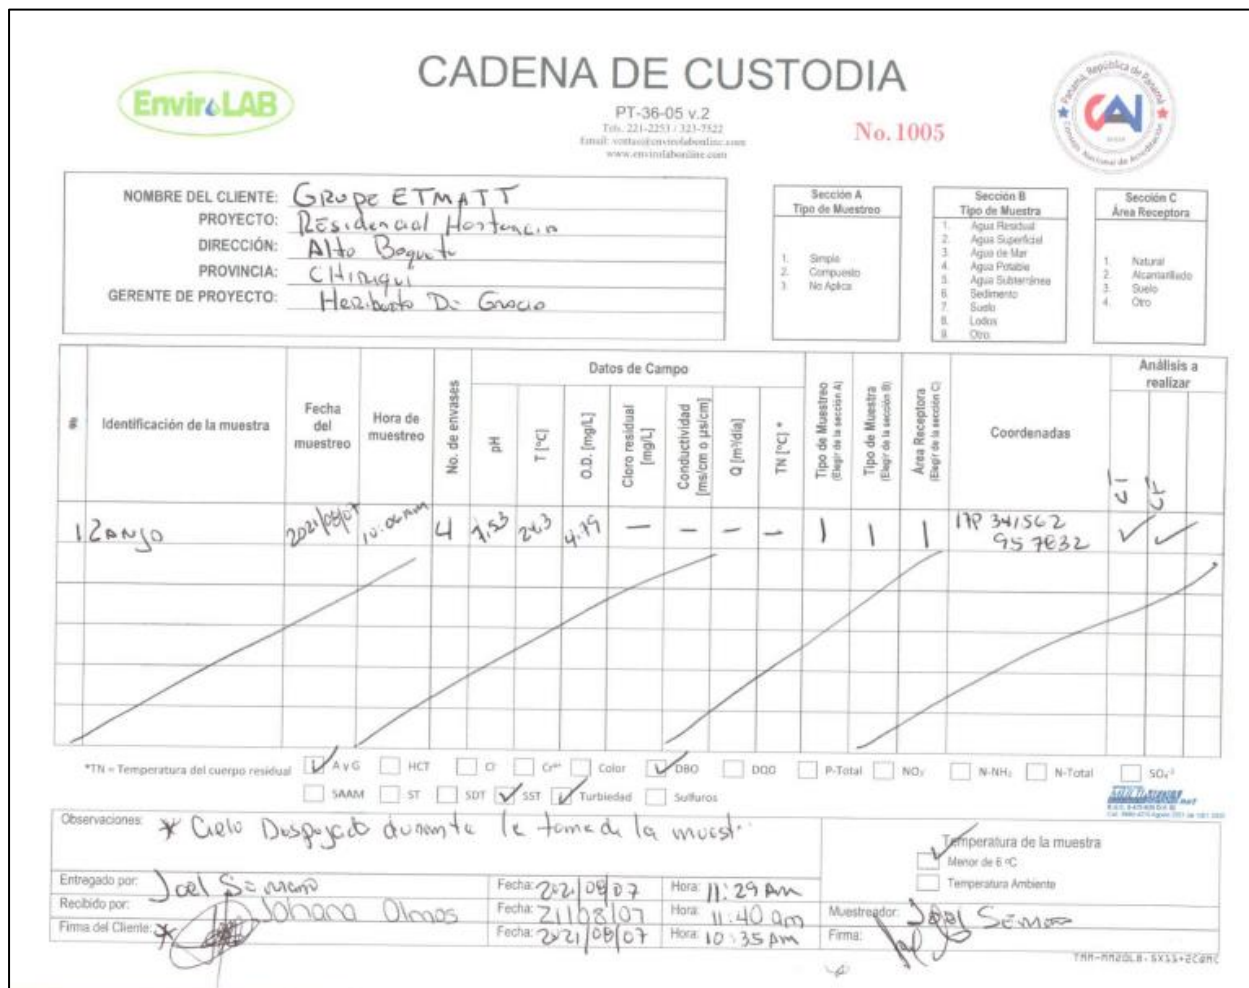 EnviroLAB
CADENA DE CUSTODIA
PT-36-05 v.2
Tels. 221-2253 / 323-7522
Email: ventas@envirolabonline.com
www.envirolabonline.com
No. 1005
Panamá, República de Panamá
CNA
Consejo Nacional de Acreditación
NOMBRE DEL CLIENTE: Grupo ETMATT
PROYECTO: Residencial Hortencia
DIRECCIÓN: Alto Boquete
PROVINCIA: CHiriquí
GERENTE DE PROYECTO: Heriberto De Gracia
Sección A
Tipo de Muestreo
1. Simple
2. Compuesto
3. No Aplica
Sección B
Tipo de Muestra
1. Agua Residual
2. Agua Superficial
3. Agua de Mar
4. Agua Potable
5. Agua Subterránea
6. Sedimento
7. Suelo
8. Lodos
9. Otro
Sección C
Área Receptora
1. Natural
2. Alcantarillado
3. Suelo
4. Otro
#
Identificación de la muestra
Fecha del muestreo
Hora de muestreo
No. de envases
Datos de Campo
pH
T [°C]
O.D. [mg/L]
Cloro residual [mg/L]
Conductividad [ms/cm o µs/cm]
Q [m³/día]
TN [°C] *
Tipo de Muestreo (Elegir de la sección A)
Tipo de Muestra (Elegir de la sección B)
Área Receptora (Elegir de la sección C)
Coordenadas
Análisis a realizar
CF
1 Zanjo 2021/08/07 4 7.53 4.79 — — — — 1 1 1 17P 341562
957832
*TN = Temperatura del cuerpo residual AyG HCT Cl⁻ Cr⁶⁺ Color DBO DQO P-Total NO₃ N-NH₃ N-Total SO₄⁻²
SAAM ST SDT SST Turbiedad Sulfuros
Observaciones: * Cielo Despejado durante la toma de la muest
Temperatura de la muestra
Menor de 6 °C
Temperatura Ambiente
Entregado por: Joel Fecha: 2021/08/07 Hora: 11:29 Am
Recibido por: Johana Olmos Fecha: 21/08/07 Hora: 11:40 am
Firma del Cliente: * Fecha: 2021/08/07 Hora: 10:35 Am
Muestreador: Joel
Firma: